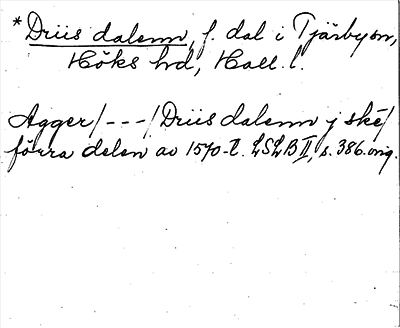 *Driis dalenn, f. dal i Tjärby sn,
Höks hd, Hall. l.
Agger/---/Driis dalenn j skē/
förra delen av 1570-t. LSLB II, s. 386. orig.